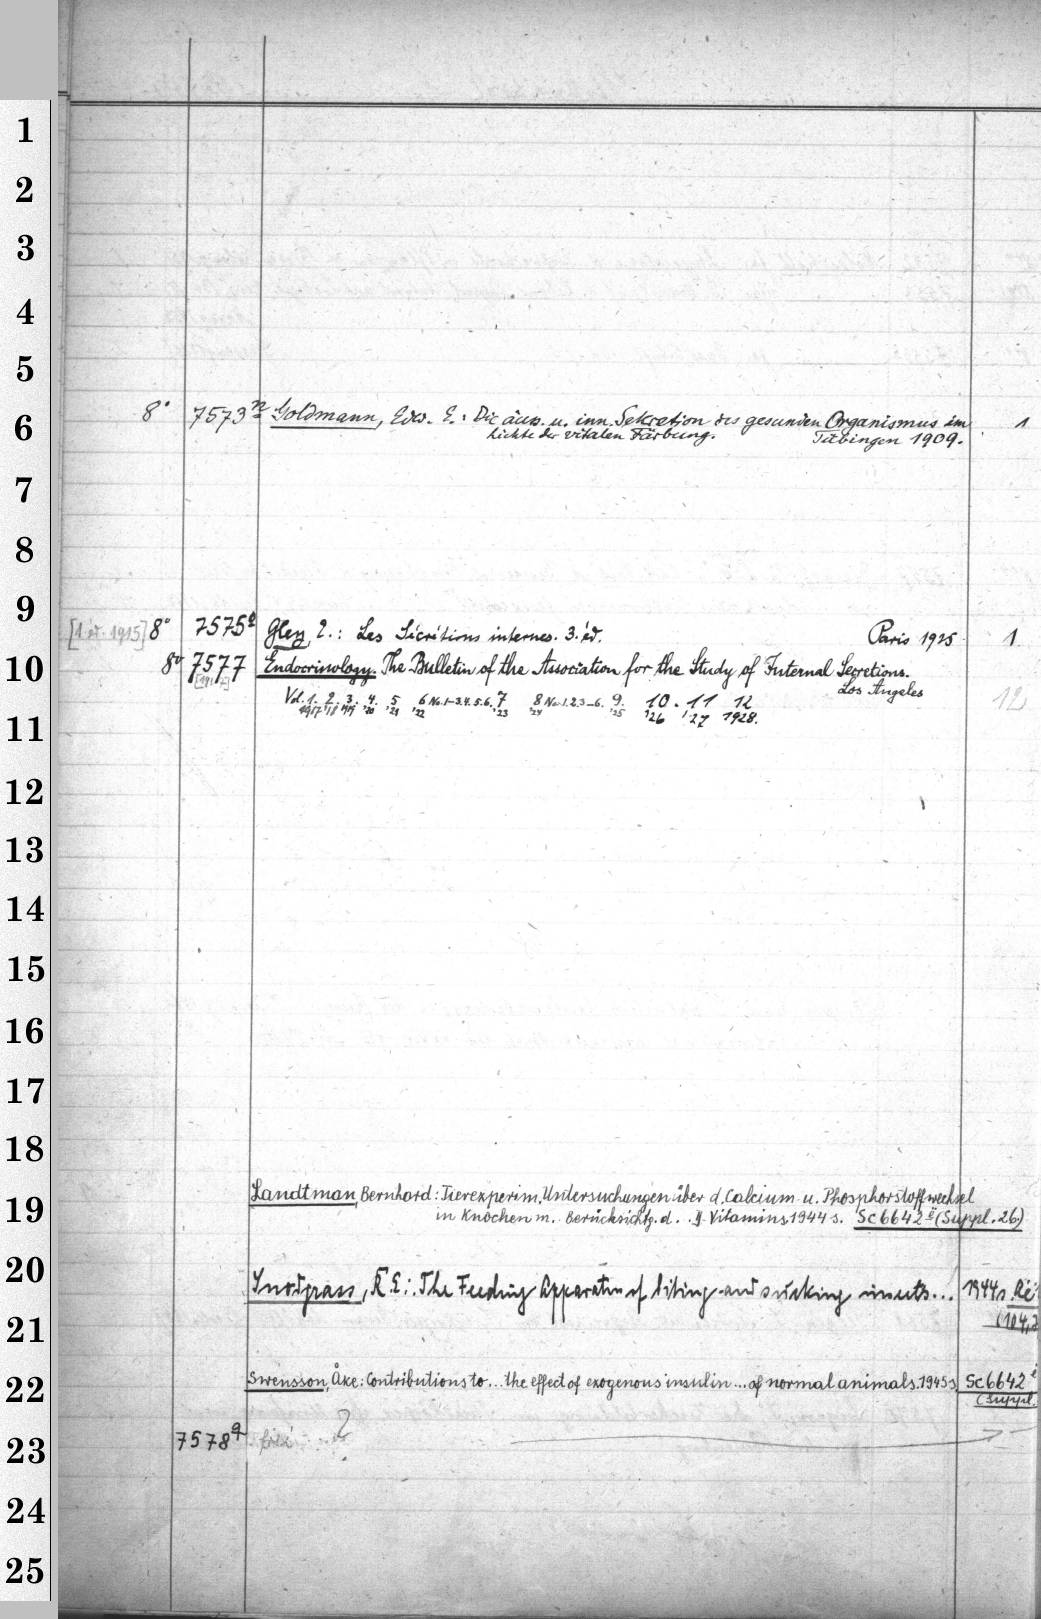 1
2
3
4
5
6
8° 7573ⁿ Goldmann, Edw. E.: Die äuss. u. inn. Sekretion des gesunden Organismus im 1
Lichte der vitalen Färbung. Tübingen 1909.
7
8
9
[1. éd. 1915] 8° 7575ᵃ Gley, E.: Les Sécrétions internes. 3. éd. Paris 1925 1
10
8° 7577 Endocrinology. The Bulletin of the Association for the Study of Internal Secretions.
Los Angeles
Vol. 1. 2. 3. 4. 5 6 No. 1-3.4.5.6. 7 8 No. 1.2.3-6. 9. 10. 11 12 12
1917 '18 '19 '20 '21 '22 '23 '24 '25 '26 '27 1928.
11
12
13
14
15
16
17
18
19
Landtman, Bernhard: Tierexperim. Untersuchungen über d. Calcium- u. Phosphorstoffwechsel
in Knochen m. Berücksichtg. d. . . Vitamins. 1944 s. Sc 6642 ë (Suppl. 26)
20
Snodgrass, R. E.: The Feeding Apparatus of biting and sucking insects... 1944 s. Re
(104,
21
22
Swensson, Åke: Contributions to... the effect of exogenous insulin... of normal animals. 1945 s. Sc 6642
(Suppl.
23
7578 q frei ?
24
25